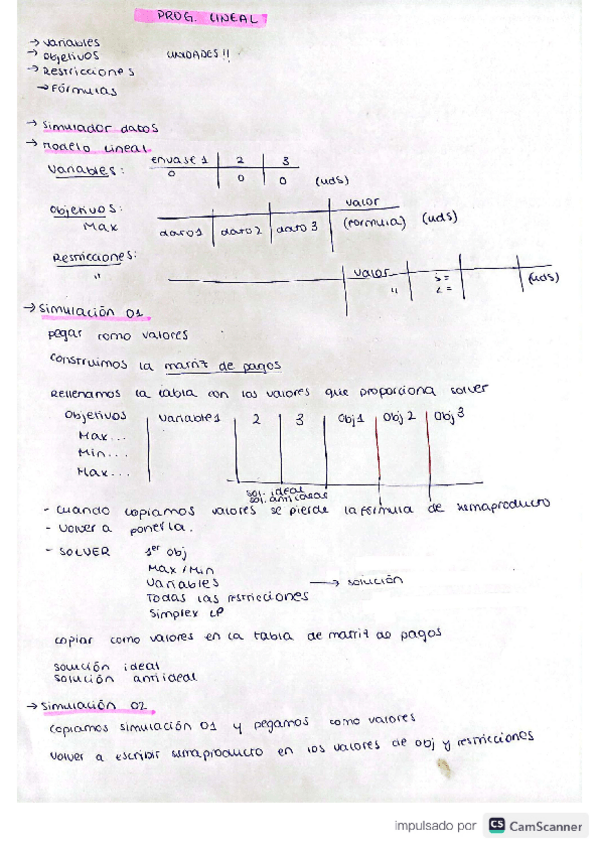 PROG. LINEAL
→ Variables
→ Objetivos UNIDADES!!
→ Restricciones
→ Fórmulas
→ Simulador datos
→ Modelo Lineal
Variables: envase 1 2 3
0 0 0 (uds)
Objetivos: valor
Max dato1 dato2 dato 3 (formula) (uds)
Restricciones:
" valor >= (uds)
" <=
→ Simulación 01
pegar como valores
construimos la matriz de pagos
Rellenamos la tabla con los valores que proporciona solver
Objetivos variable1 2 3 Obj1 Obj 2 Obj 3
Max...
Min...
Max...
sol. ideal
sol. antiideal
- cuando copiamos valores se pierde la fórmula de sumaproducto
- volver a ponerla.
- SOLVER 1er obj
Max/Min
Variables → solución
Todas las restricciones
Simplex LP
copiar como valores en la tabla de matriz de pagos
solución ideal
solución antiideal
→ Simulación 02
copiamos simulación 01 y pegamos como valores
volver a escribir sumaproducto en los valores de obj y restricciones
impulsado por CS CamScanner